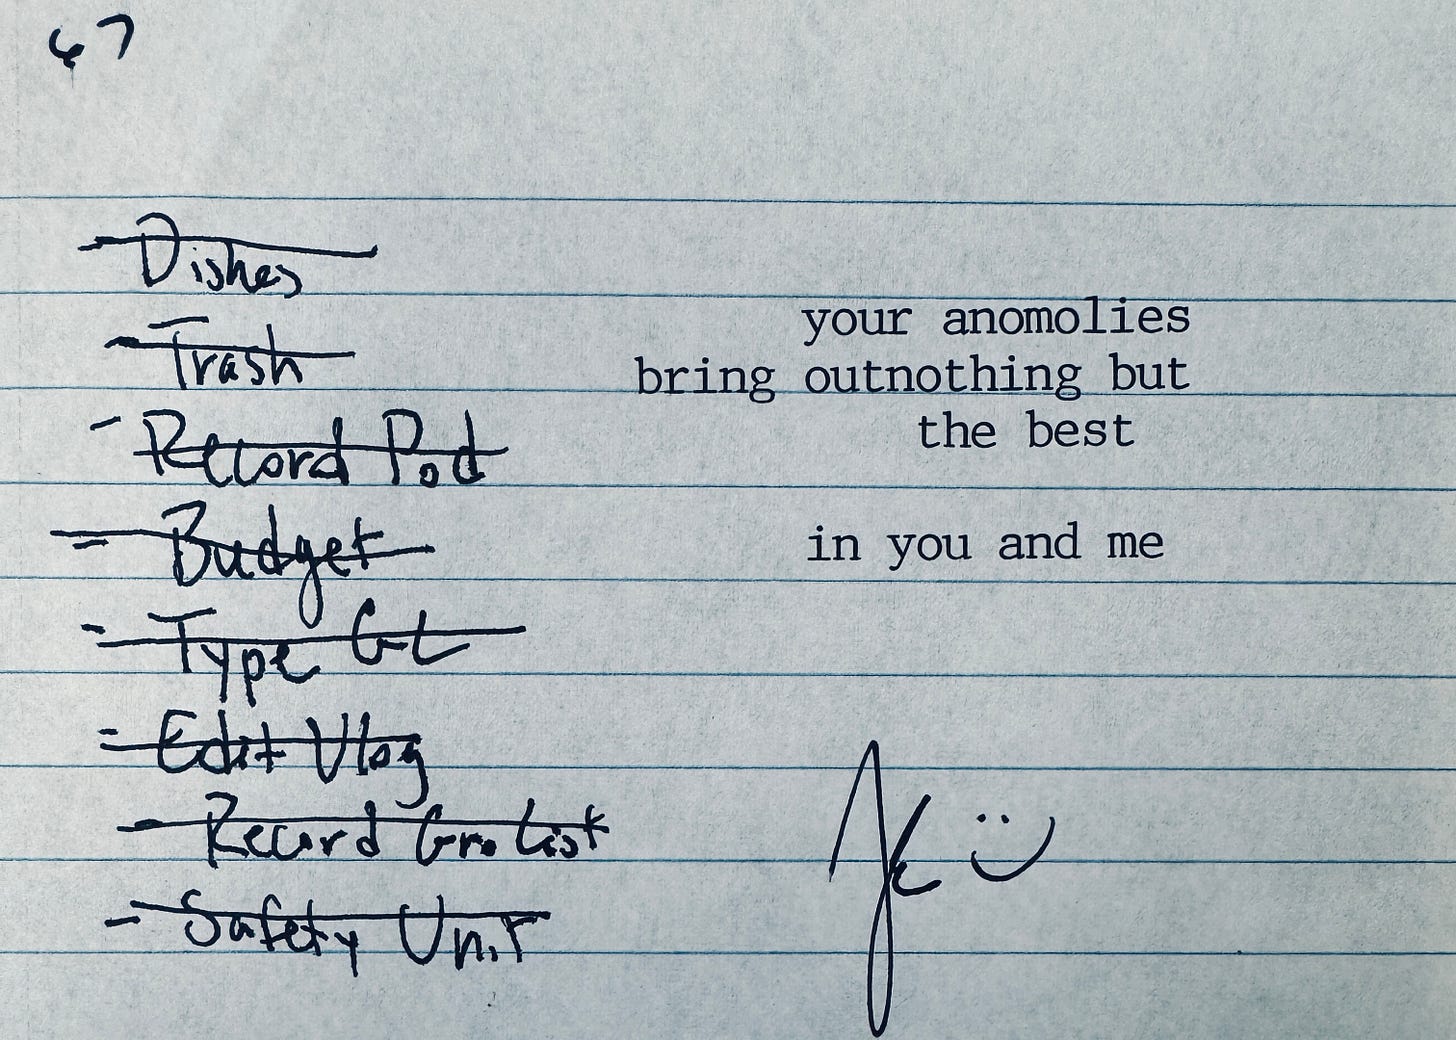 67
- Dishes
- Trash
- Record Pod
- Budget
- Type GL
- Edit Vlog
- Record Gro. List
- Safety Unit
your anomolies
bring outnothing but
the best
in you and me